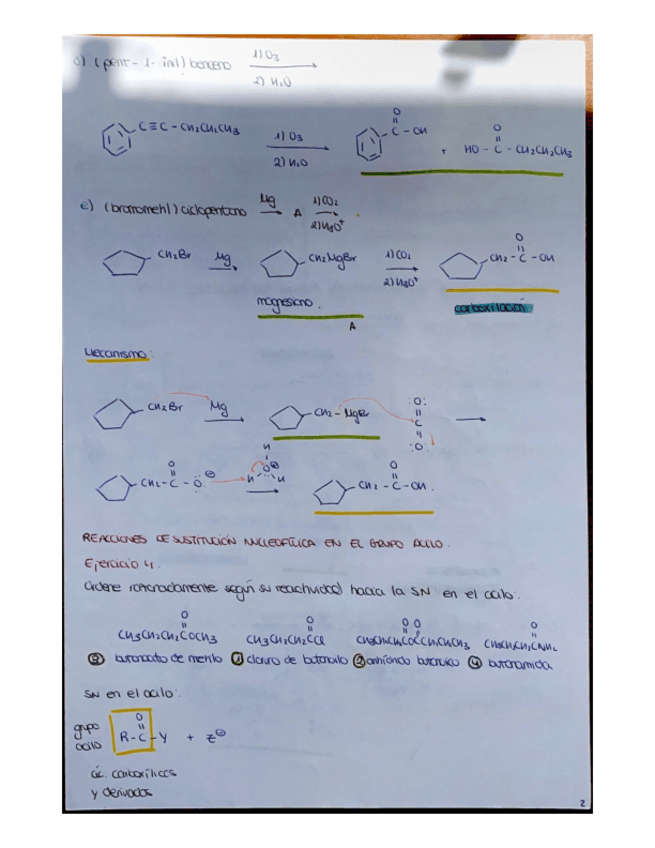 d) (pent-1-inil) benceno 1) O3 2) H2O
C≡C-CH2CH2CH3 1) O3 2) H2O O C-OH + HO-C-CH2CH2CH3 O
e) (bromometil) ciclopentano Mg A 1) CO2 2) H3O+
CH2Br Mg CH2MgBr 1) CO2 2) H3O+ CH2-C-OH O
magnesiano. carboxilación
A
Mecanismo:
CH2Br Mg CH2-MgBr :O: C :O:
CH2-C-O: O H O H H CH2-C-OH. O
REACCIONES DE SUSTITUCIÓN NUCLEOFÍLICA EN EL GRUPO ACILO.
Ejercicio 4.
Ordene razonadamente según su reactividad hacia la SN en el acilo:
O O O O O
CH3CH2CH2COCH3 CH3CH2CH2CCl CH3CH2CH2COCCH2CH2CH3 CH3CH2CH2CNH2
③ butanoato de metilo ① cloruro de butanoilo ② anhídrido butanoico ④ butanamida
SN en el acilo:
grupo acilo O R-C-Y + Z⊖
ác. carboxílicos
y derivados
2